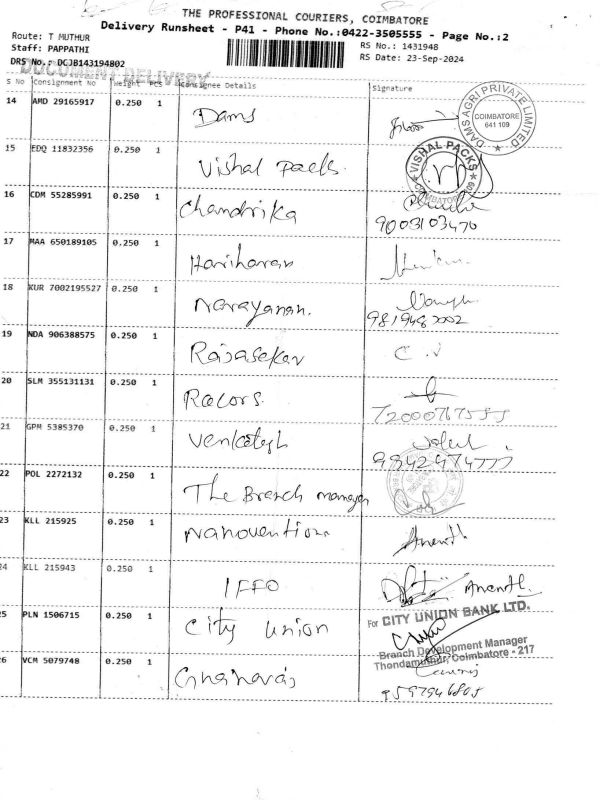 THE PROFESSIONAL COURIERS, COIMBATORE
Delivery Runsheet - P41 - Phone No.:0422-3505555 - Page No.:2
Route: T MUTHUR
RS No.: 1431948
Staff: PAPPATHI
RS Date: 23-Sep-2024
DRS No.: DCJB143194802
DOCUMENT DELIVERY
S No Consignment No Weight Pcs Consignee Details Signature
14 AMD 29165917 0.250 1 Dams
DAMS AGRI PRIVATE LIMITED
COIMBATORE
641 109
15 EDQ 11832356 0.250 1 Vishal Packs.
VISHAL PACKS
COIMBATORE
16 CDM 55285991 0.250 1 Chandrika
9003103476
17 MAA 650189105 0.250 1 Hariharan
18 KUR 7002195527 0.250 1 Narayanan.
19 NDA 906388575 0.250 1 Rajasekar
C. V
20 SLM 355131131 0.250 1 Racors.
21 GPM 5385370 0.250 1 Venkatesh
22 POL 2272132 0.250 1 The Branch manager
23 KLL 215925 0.250 1 Nanovention
Ananth
24 KLL 215943 0.250 1 IFFO Ananth.
25 PLN 1506715 0.250 1 City union
For CITY UNION BANK LTD.
Branch Development Manager
Thondamuthur, Coimbatore - 217
26 VCM 5079748 0.250 1 Gnanaraj